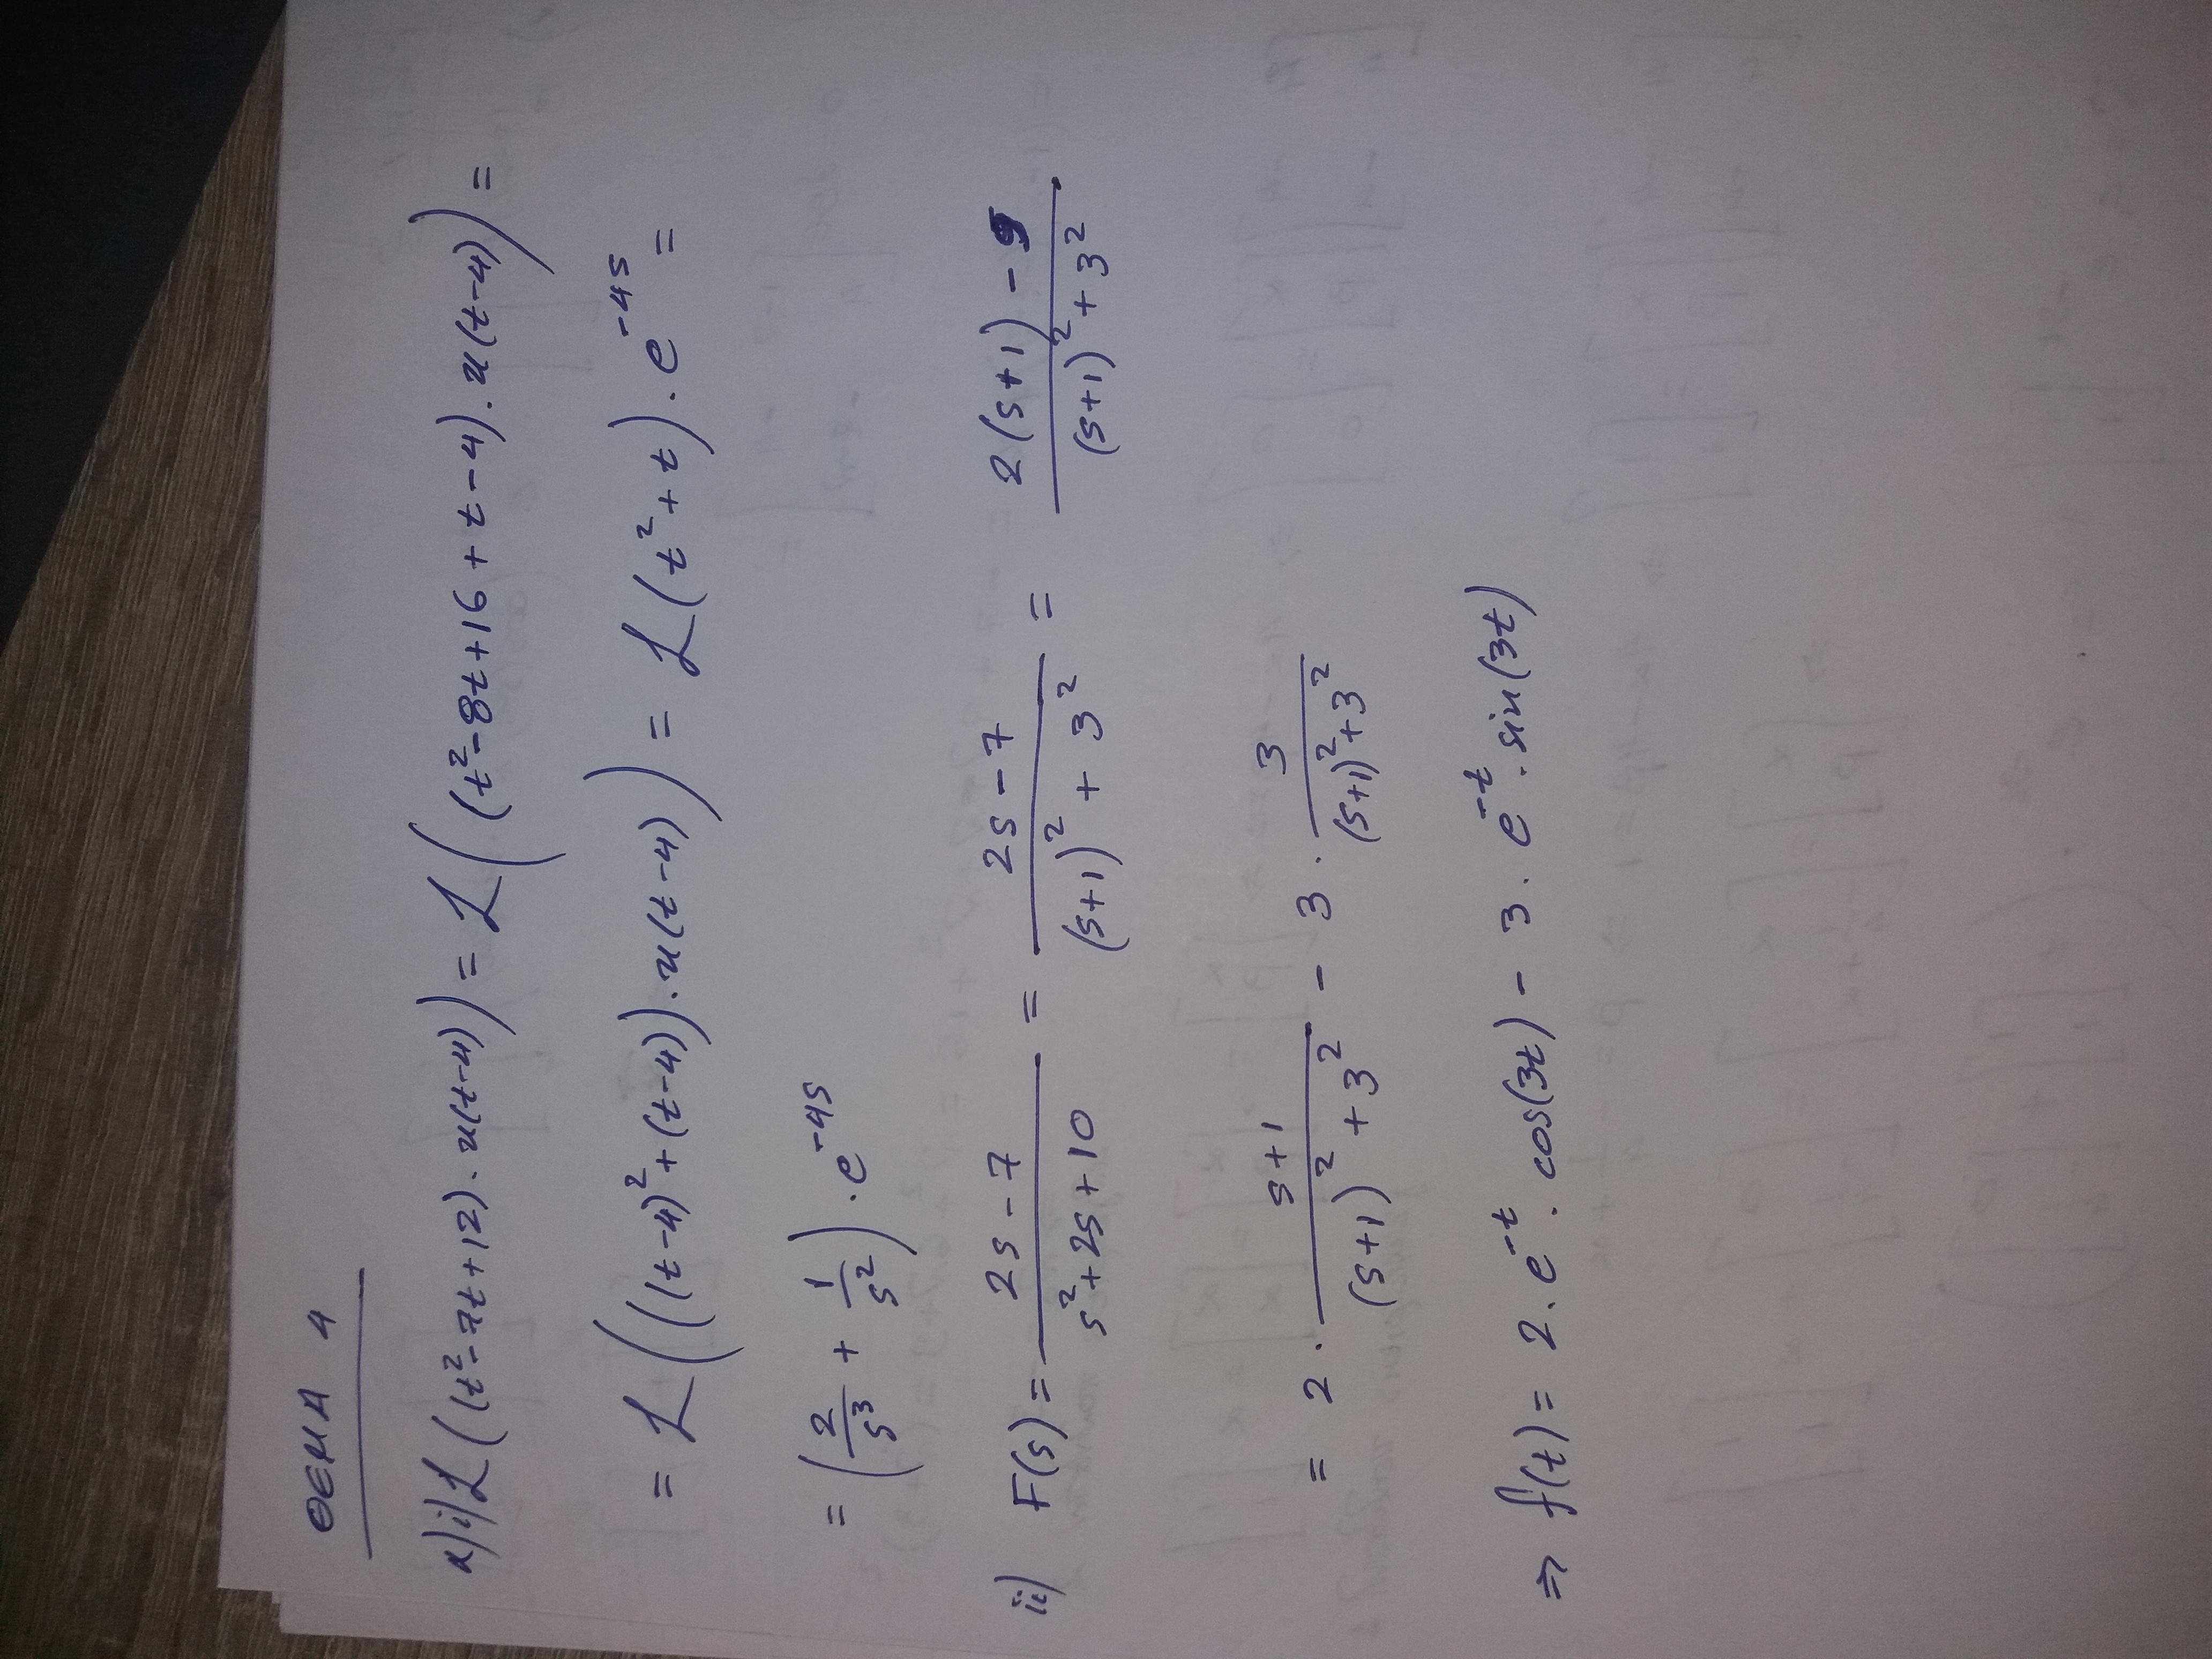 ΘΕΜΑ 4
α) i) ℒ((t²-7t+12)·u(t-4)) = ℒ((t²-8t+16+t-4)·u(t-4)) =
= ℒ(((t-4)²+(t-4))·u(t-4)) = ℒ(t²+t)·e^{-4s} =
= (2/s³ + 1/s²)·e^{-4s}
ii) F(s) = (2s-7)/(s²+2s+10) = (2s-7)/((s+1)²+3²) = (2(s+1)-9)/((s+1)²+3²)
= 2·(s+1)/((s+1)²+3²) - 3·3/((s+1)²+3²)
⇒ f(t) = 2·e^{-t}·cos(3t) - 3·e^{-t}·sin(3t)